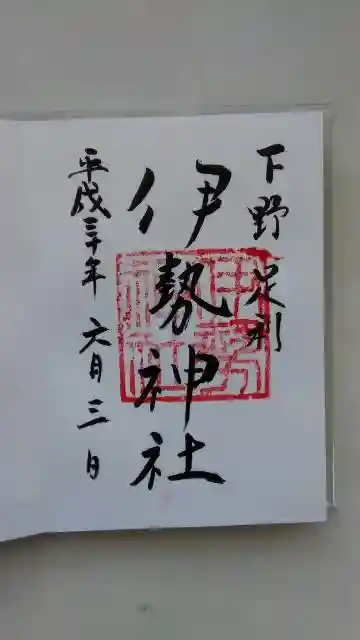 下野足利
伊勢神社
平成三十年六月三日
伊勢神社